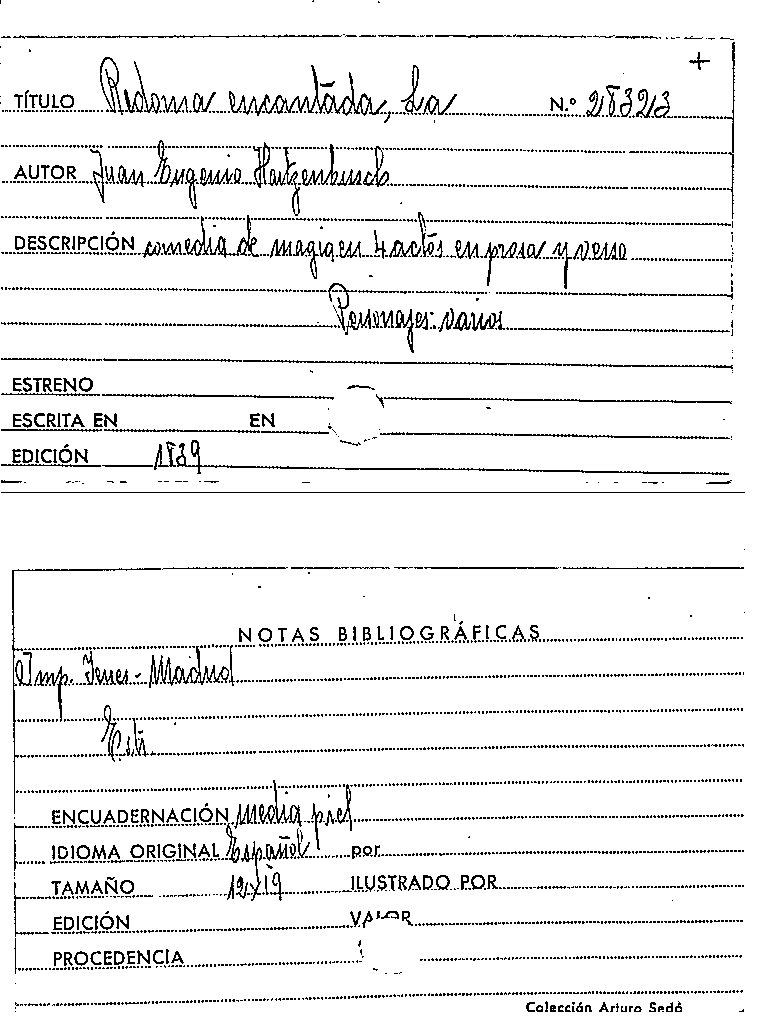 +
TÍTULO Redoma encantada, La N.º 283213
AUTOR Juan Eugenio Hartzenbusch
DESCRIPCIÓN comedia de magia en 4 actos en prosa y verso
Personajes: varios
ESTRENO
ESCRITA EN EN
EDICIÓN 1839
NOTAS BIBLIOGRÁFICAS
Imp. Yenes - Madrid
ENCUADERNACIÓN media piel
IDIOMA ORIGINAL Español por
TAMAÑO 12x19 ILUSTRADO POR
EDICIÓN VALOR
PROCEDENCIA
Colección Arturo Sedó